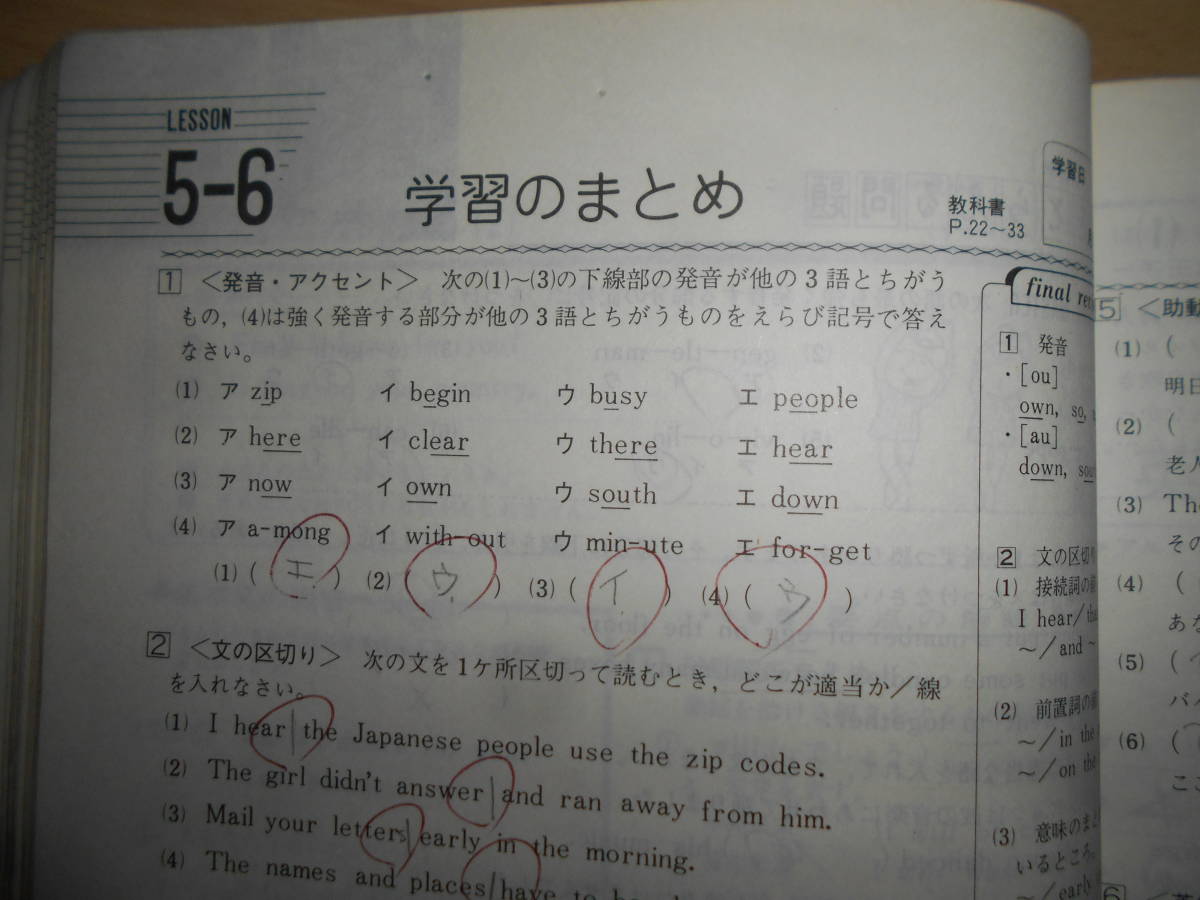 LESSON
5-6
学習のまとめ
教科書
P.22〜33
学習日
1 <発音・アクセント> 次の(1)〜(3)の下線部の発音が他の3語とちがう
もの，(4)は強く発音する部分が他の3語とちがうものをえらび記号で答え
なさい。
(1) ア zip イ begin ウ busy エ people
(2) ア here イ clear ウ there エ hear
(3) ア now イ own ウ south エ down
(4) ア a-mong イ with-out ウ min-ute エ for-get
(1) ( エ ) (2) ( ウ ) (3) ( イ ) (4) ( ウ )
2 <文の区切り> 次の文を1ケ所区切って読むとき，どこが適当か/線
を入れなさい。
(1) I hear | the Japanese people use the zip codes.
(2) The girl didn't answer | and ran away from him.
(3) Mail your letters | early in the morning.
(4) The names and places / have to
final
1 発音
・[ou]
own, so,
・[au]
down,
2 文の区切り
(1) 接続詞の
I hear/
〜/and 〜
(2) 前置詞の
〜/in the
〜/on the
(3) 意味のま
いるところ。
〜/early
5 <助動
(1) (
明日
(2) (
老人
(3) The
その
(4) (
あな
(5) (
バ
(6) (
ここ
6